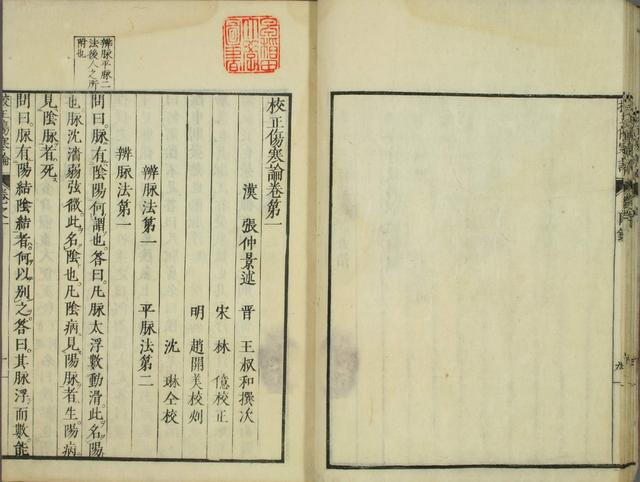 校正傷寒論卷第一
漢 張仲景述 晉 王叔和撰次
宋 林 億校正
明 趙開美校刻
沈 琳仝校
辨脉法第一 平脉法第二
辨脉法第一
問曰脉有陰陽何謂也答曰凡脉太浮數動滑此名陽
也脉沈濇弱弦微此名陰也凡陰病見陽脉者生陽病
見陰脉者死
問曰脉有陽結陰結者何以別之答曰其脉浮而數能
辨脉平脉二
法後人之所
附也
早稻田
大學
圖書
校正傷寒論